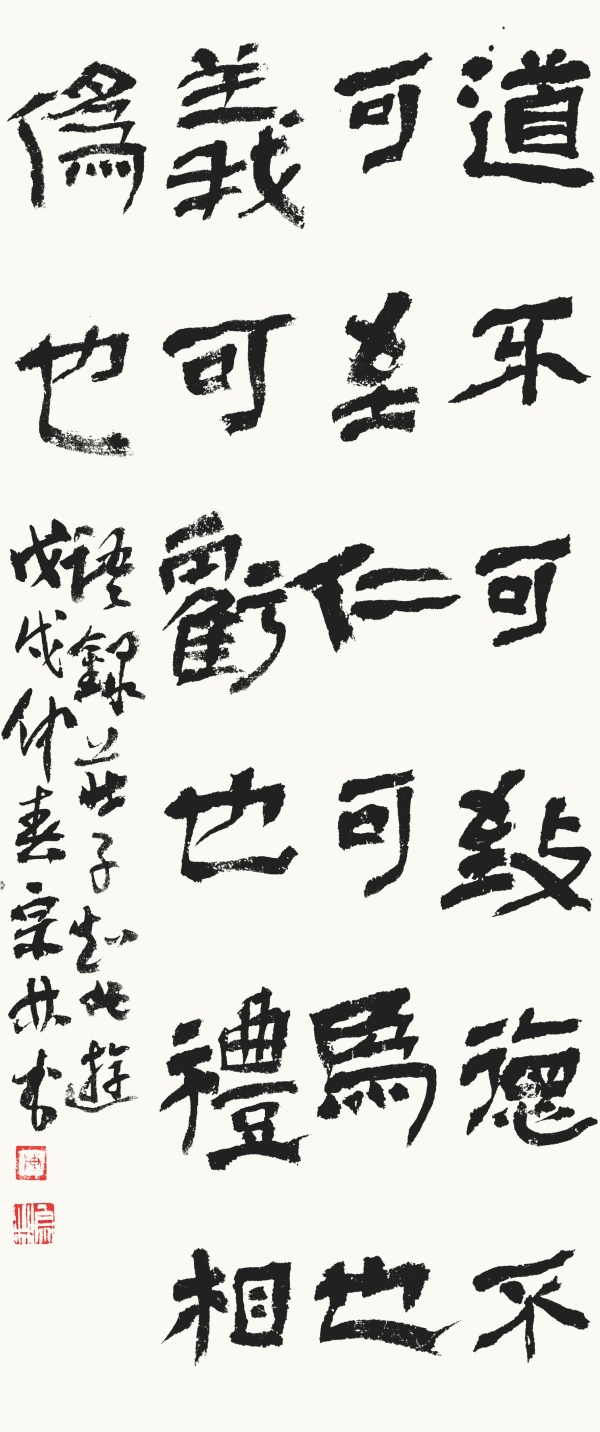 道不可致德不
可至仁可爲也
義可虧也禮相
僞也
語錄莊子知北遊
戊戌仲春宗林书